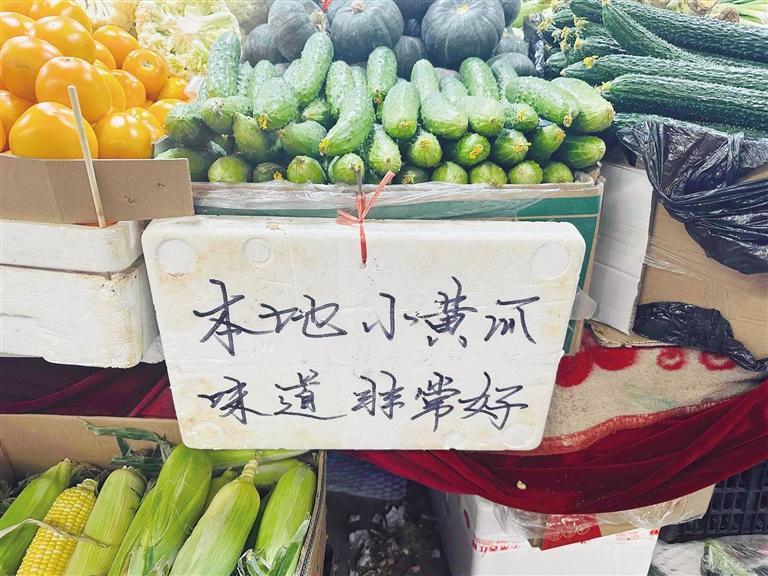 本地小黄瓜
味道非常好